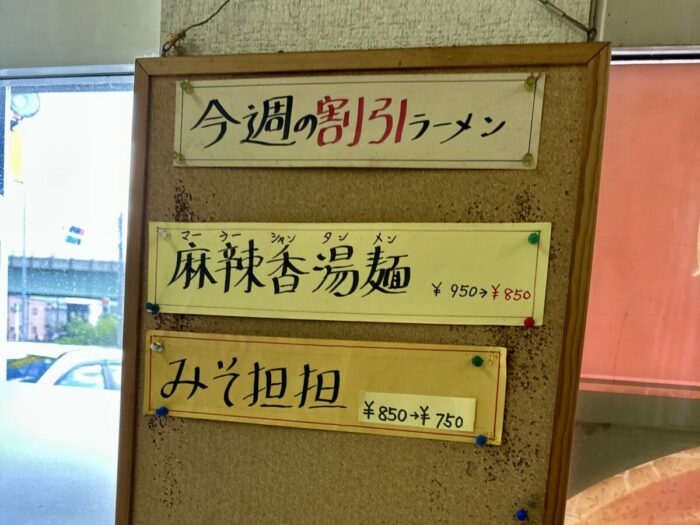 今週の割引ラーメン
マー ラー シャン タン メン
麻辣香湯麺 ¥950→¥850
みそ担担 ¥850→¥750